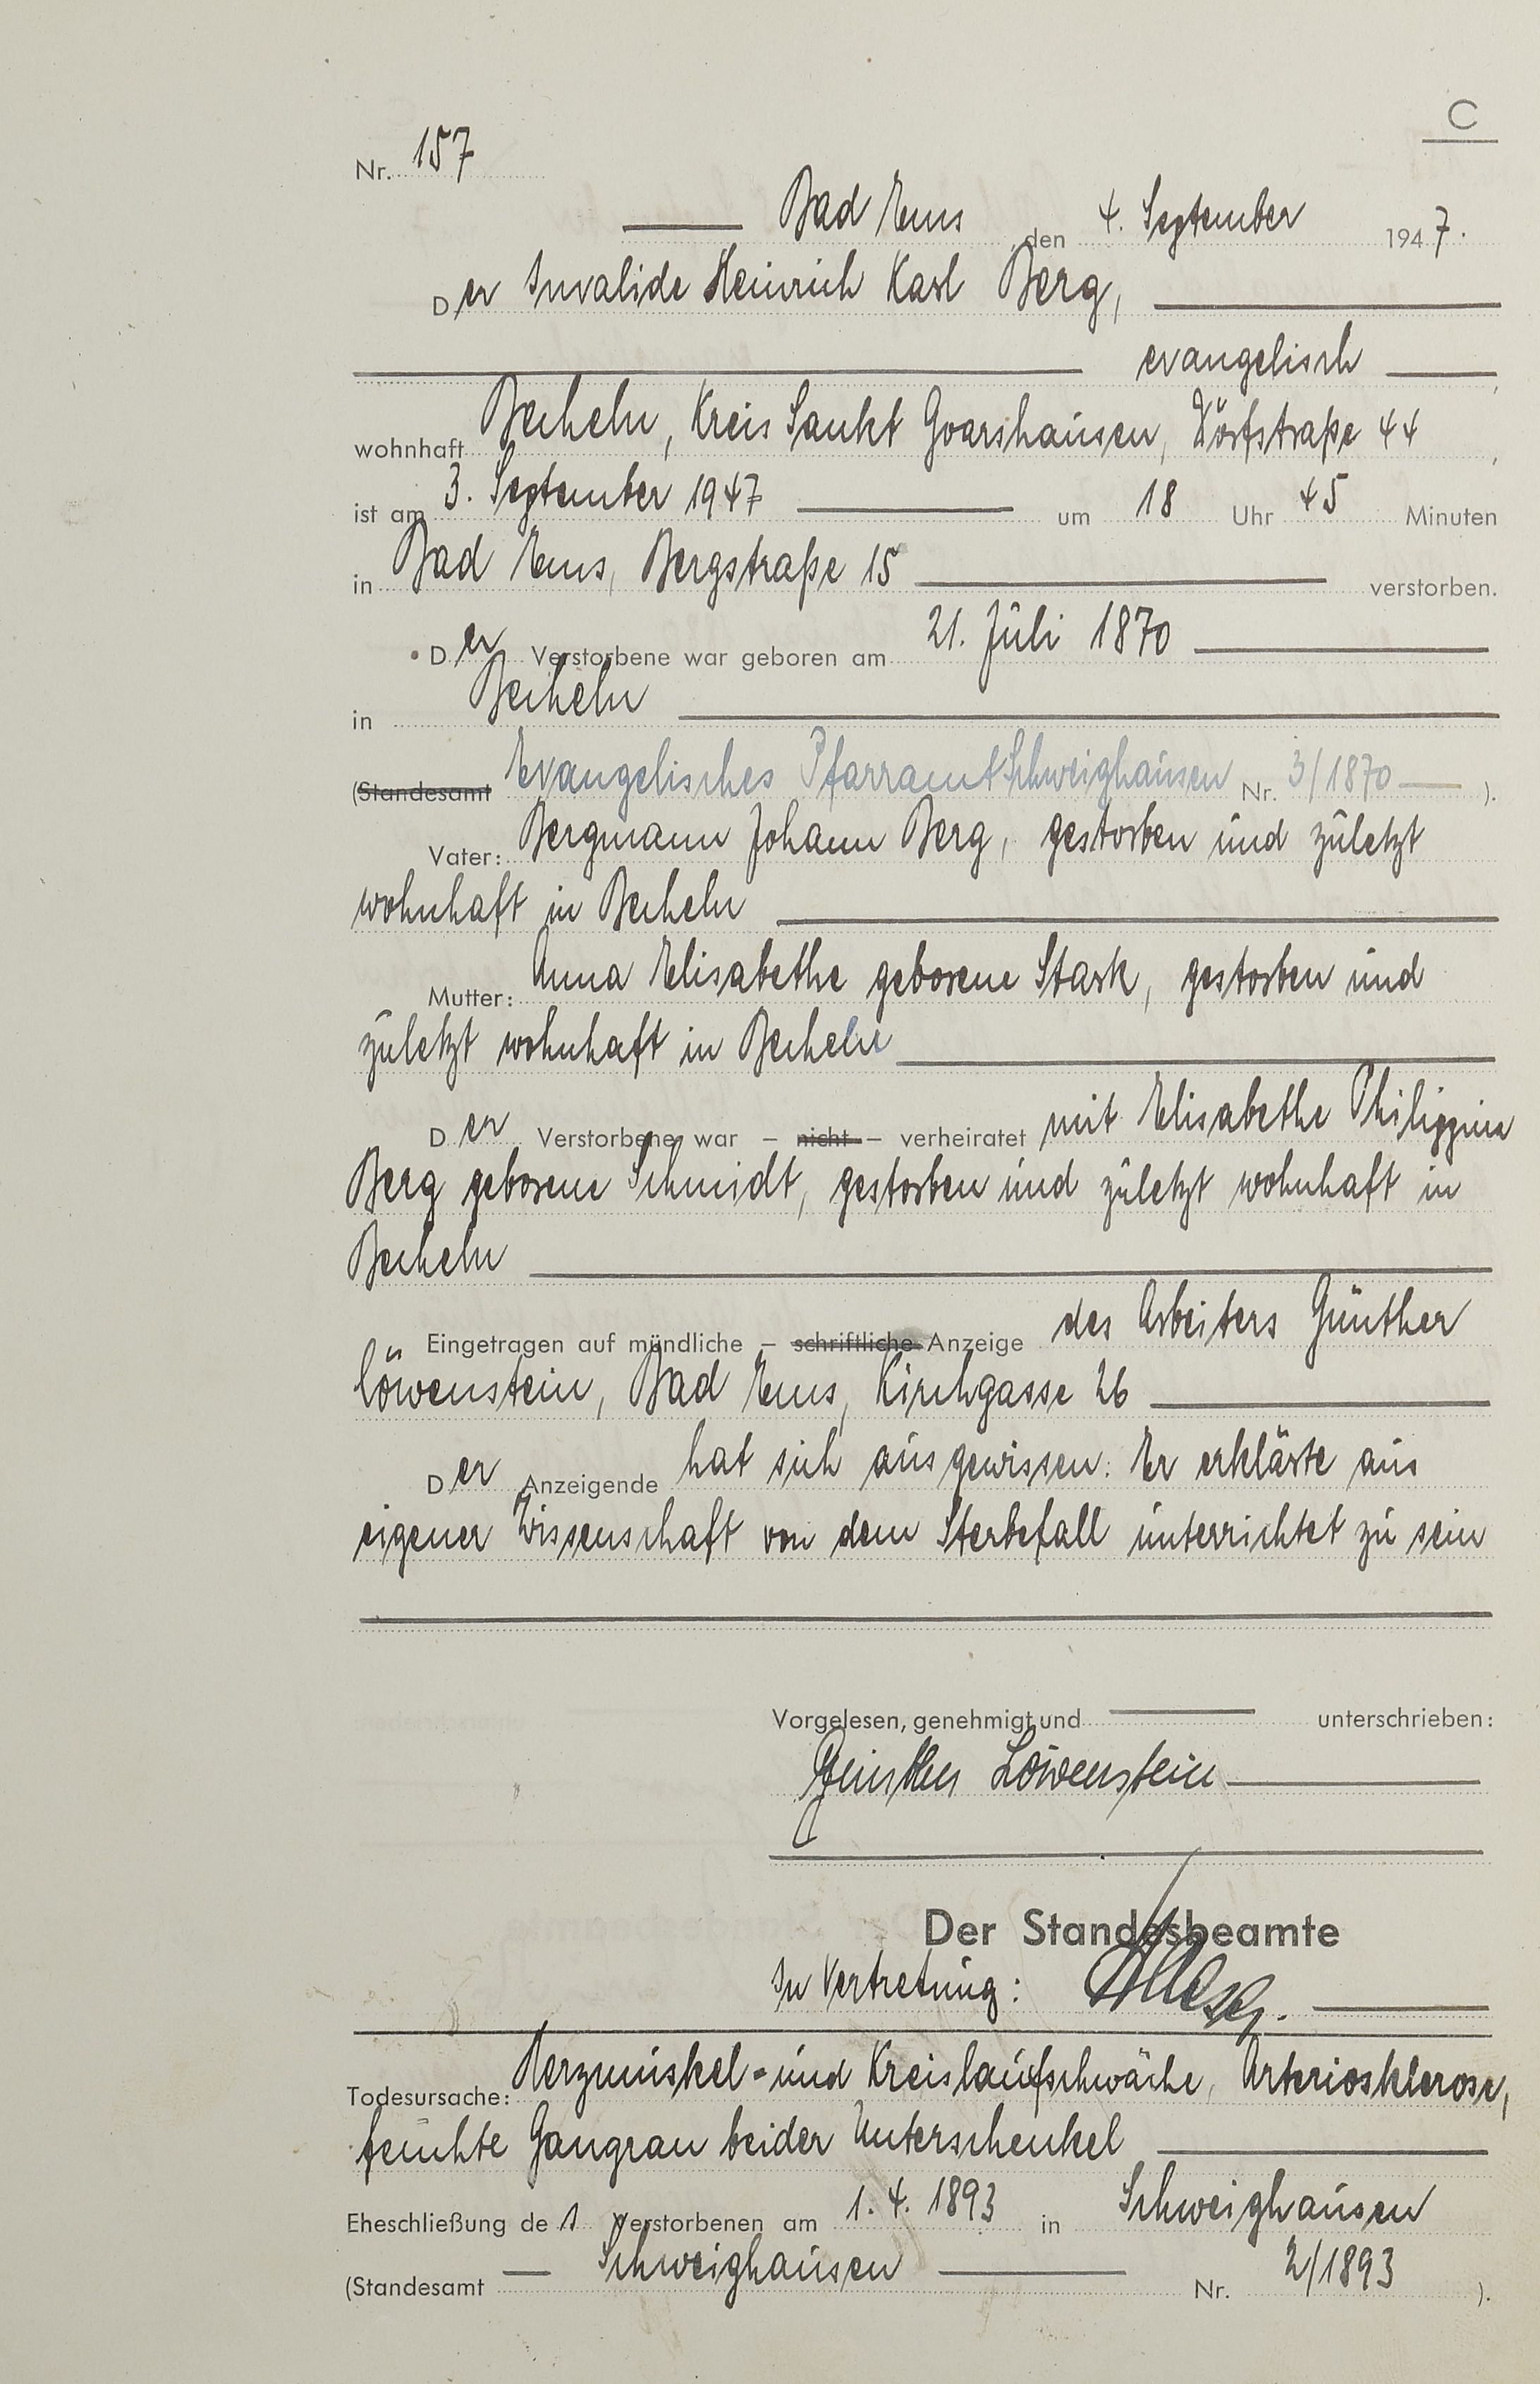 C
Nr. 157
Bad Ems, den 4. September 1947.
Der Invalide Heinrich Karl Berg,
evangelisch,
wohnhaft Becheln, Kreis Sankt Goarshausen, Dörfstraße 44,
ist am 3. September 1947 um 18 Uhr 45 Minuten
in Bad Ems, Bergstraße 15 verstorben.
Der Verstorbene war geboren am 21. Juli 1870
in Becheln
(Standesamt Evangelisches Pfarramt Schweighausen Nr. 3/1870).
Vater: Bergmann Johann Berg, gestorben und zuletzt
wohnhaft in Becheln
Mutter: Anna Elisabethe geborene Stark, gestorben und
zuletzt wohnhaft in Becheln
Der Verstorbene war – nicht – verheiratet mit Elisabethe Philippine
Berg geborene Schmidt, gestorben und zuletzt wohnhaft in
Becheln
Eingetragen auf mündliche – schriftliche Anzeige des Arbeiters Günther
Löwenstein, Bad Ems, Kirchgasse 26
Der Anzeigende hat sich ausgewissen. Er erklärte aus
eigener Wissenschaft von dem Sterbefall unterrichtet zu sein
Vorgelesen, genehmigt und unterschrieben:
Günther Löwenstein
Der Standesbeamte
In Vertretung:
Todesursache: Herzmuskel- und Kreislaufschwäche, Arteriosklerose,
feuchte Gangran beider Unterschenkel
Eheschließung des Verstorbenen am 1. 4. 1893 in Schweighausen
(Standesamt Schweighausen Nr. 2/1893).